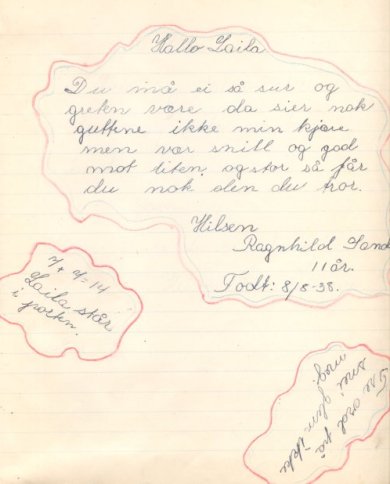 Hallo Laila
Du må ei så sur og
gretn være da sier nok
guttene ikke min kjære
men vær snill og god
mot liten, og stor så får
du nok den du tror.
Hilsen
Ragnhild Sand
11 år.
Todt: 8/8-38.
7+7=14
Laila står
i porten.
Tre ord på
rei
glem ikke
meg